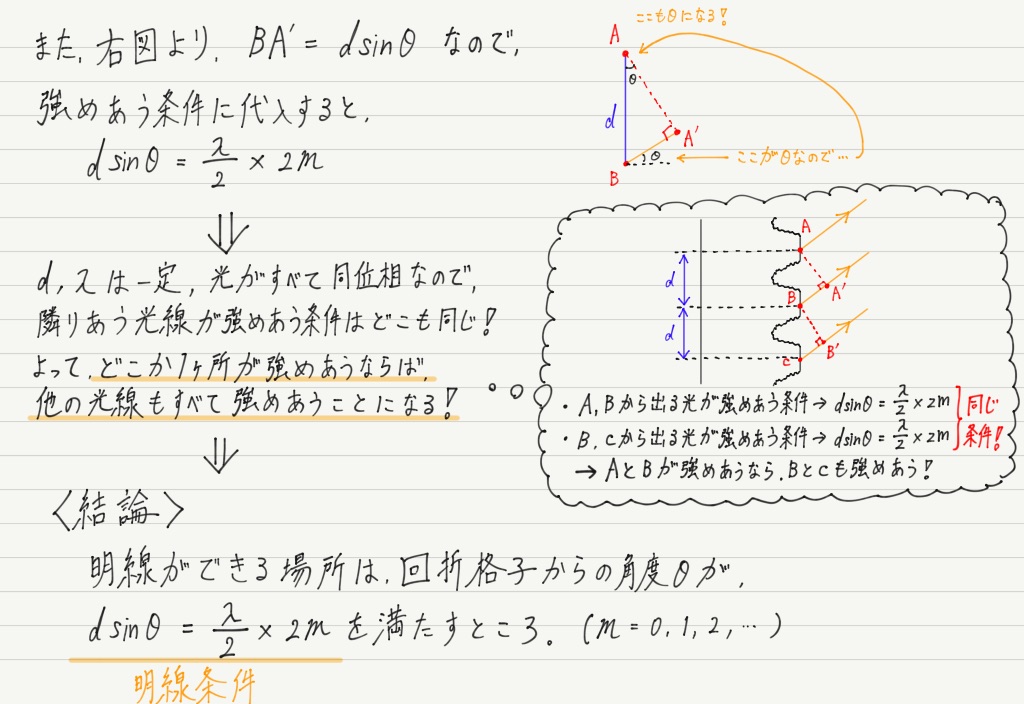 また, 右図より, BA' = dsinθ なので,
強めあう条件に代入すると,
dsinθ = λ/2 × 2m
⇓
d, λは一定, 光がすべて同位相なので,
隣りあう光線が強めあう条件はどこも同じ!
よって, どこか1ヶ所が強めあうならば,
他の光線もすべて強めあうことになる!
⇓
〈結論〉
明線ができる場所は, 回折格子からの角度θが,
dsinθ = λ/2 × 2m を満たすところ. (m = 0, 1, 2, … )
明線条件
ここもθになる!
A
θ
d
A'
θ
ここがθなので…
B
A
d
B
A'
d
B'
C
・A, Bから出る光が強めあう条件→ dsinθ = λ/2 × 2m
・B, Cから出る光が強めあう条件→ dsinθ = λ/2 × 2m
同じ
条件!
→ AとBが強めあうなら, BとCも強めあう!